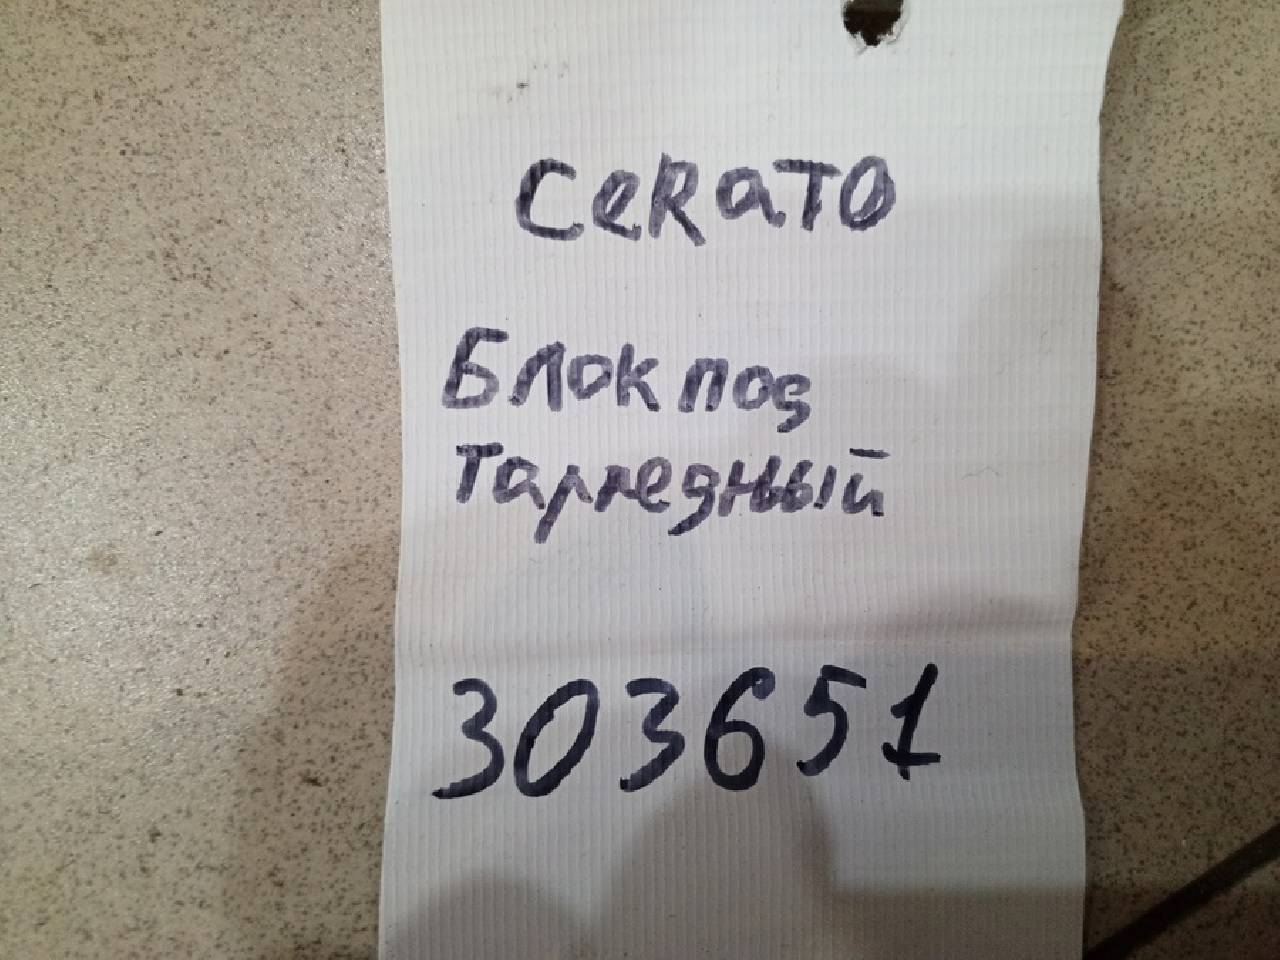 CeRaTO
Блок под
Тарпедный
303651